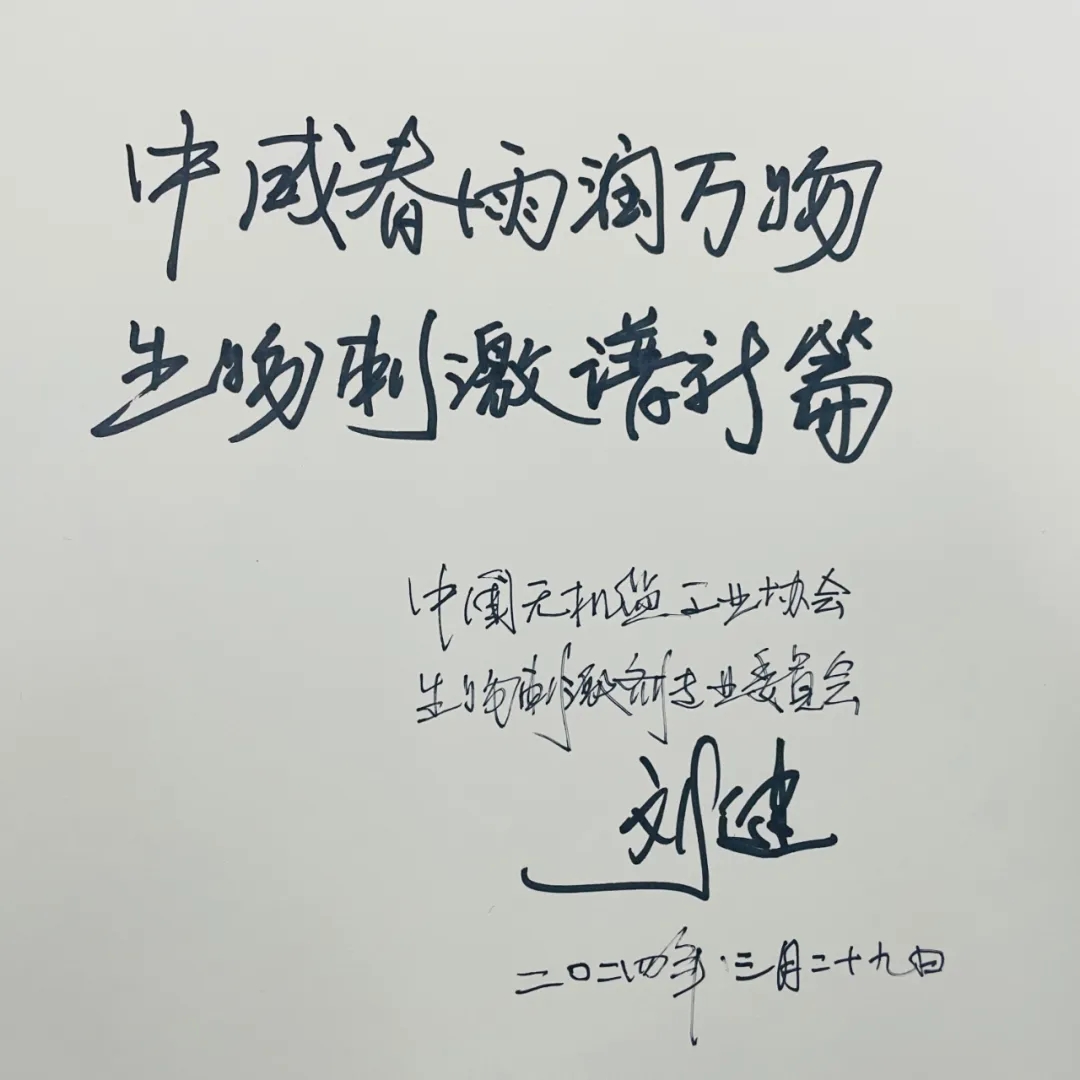 中威春雨润万物
生物刺激谱新篇
中国无机盐工业协会
生物刺激剂专业委员会
刘健
二〇二四年·三月二十九日